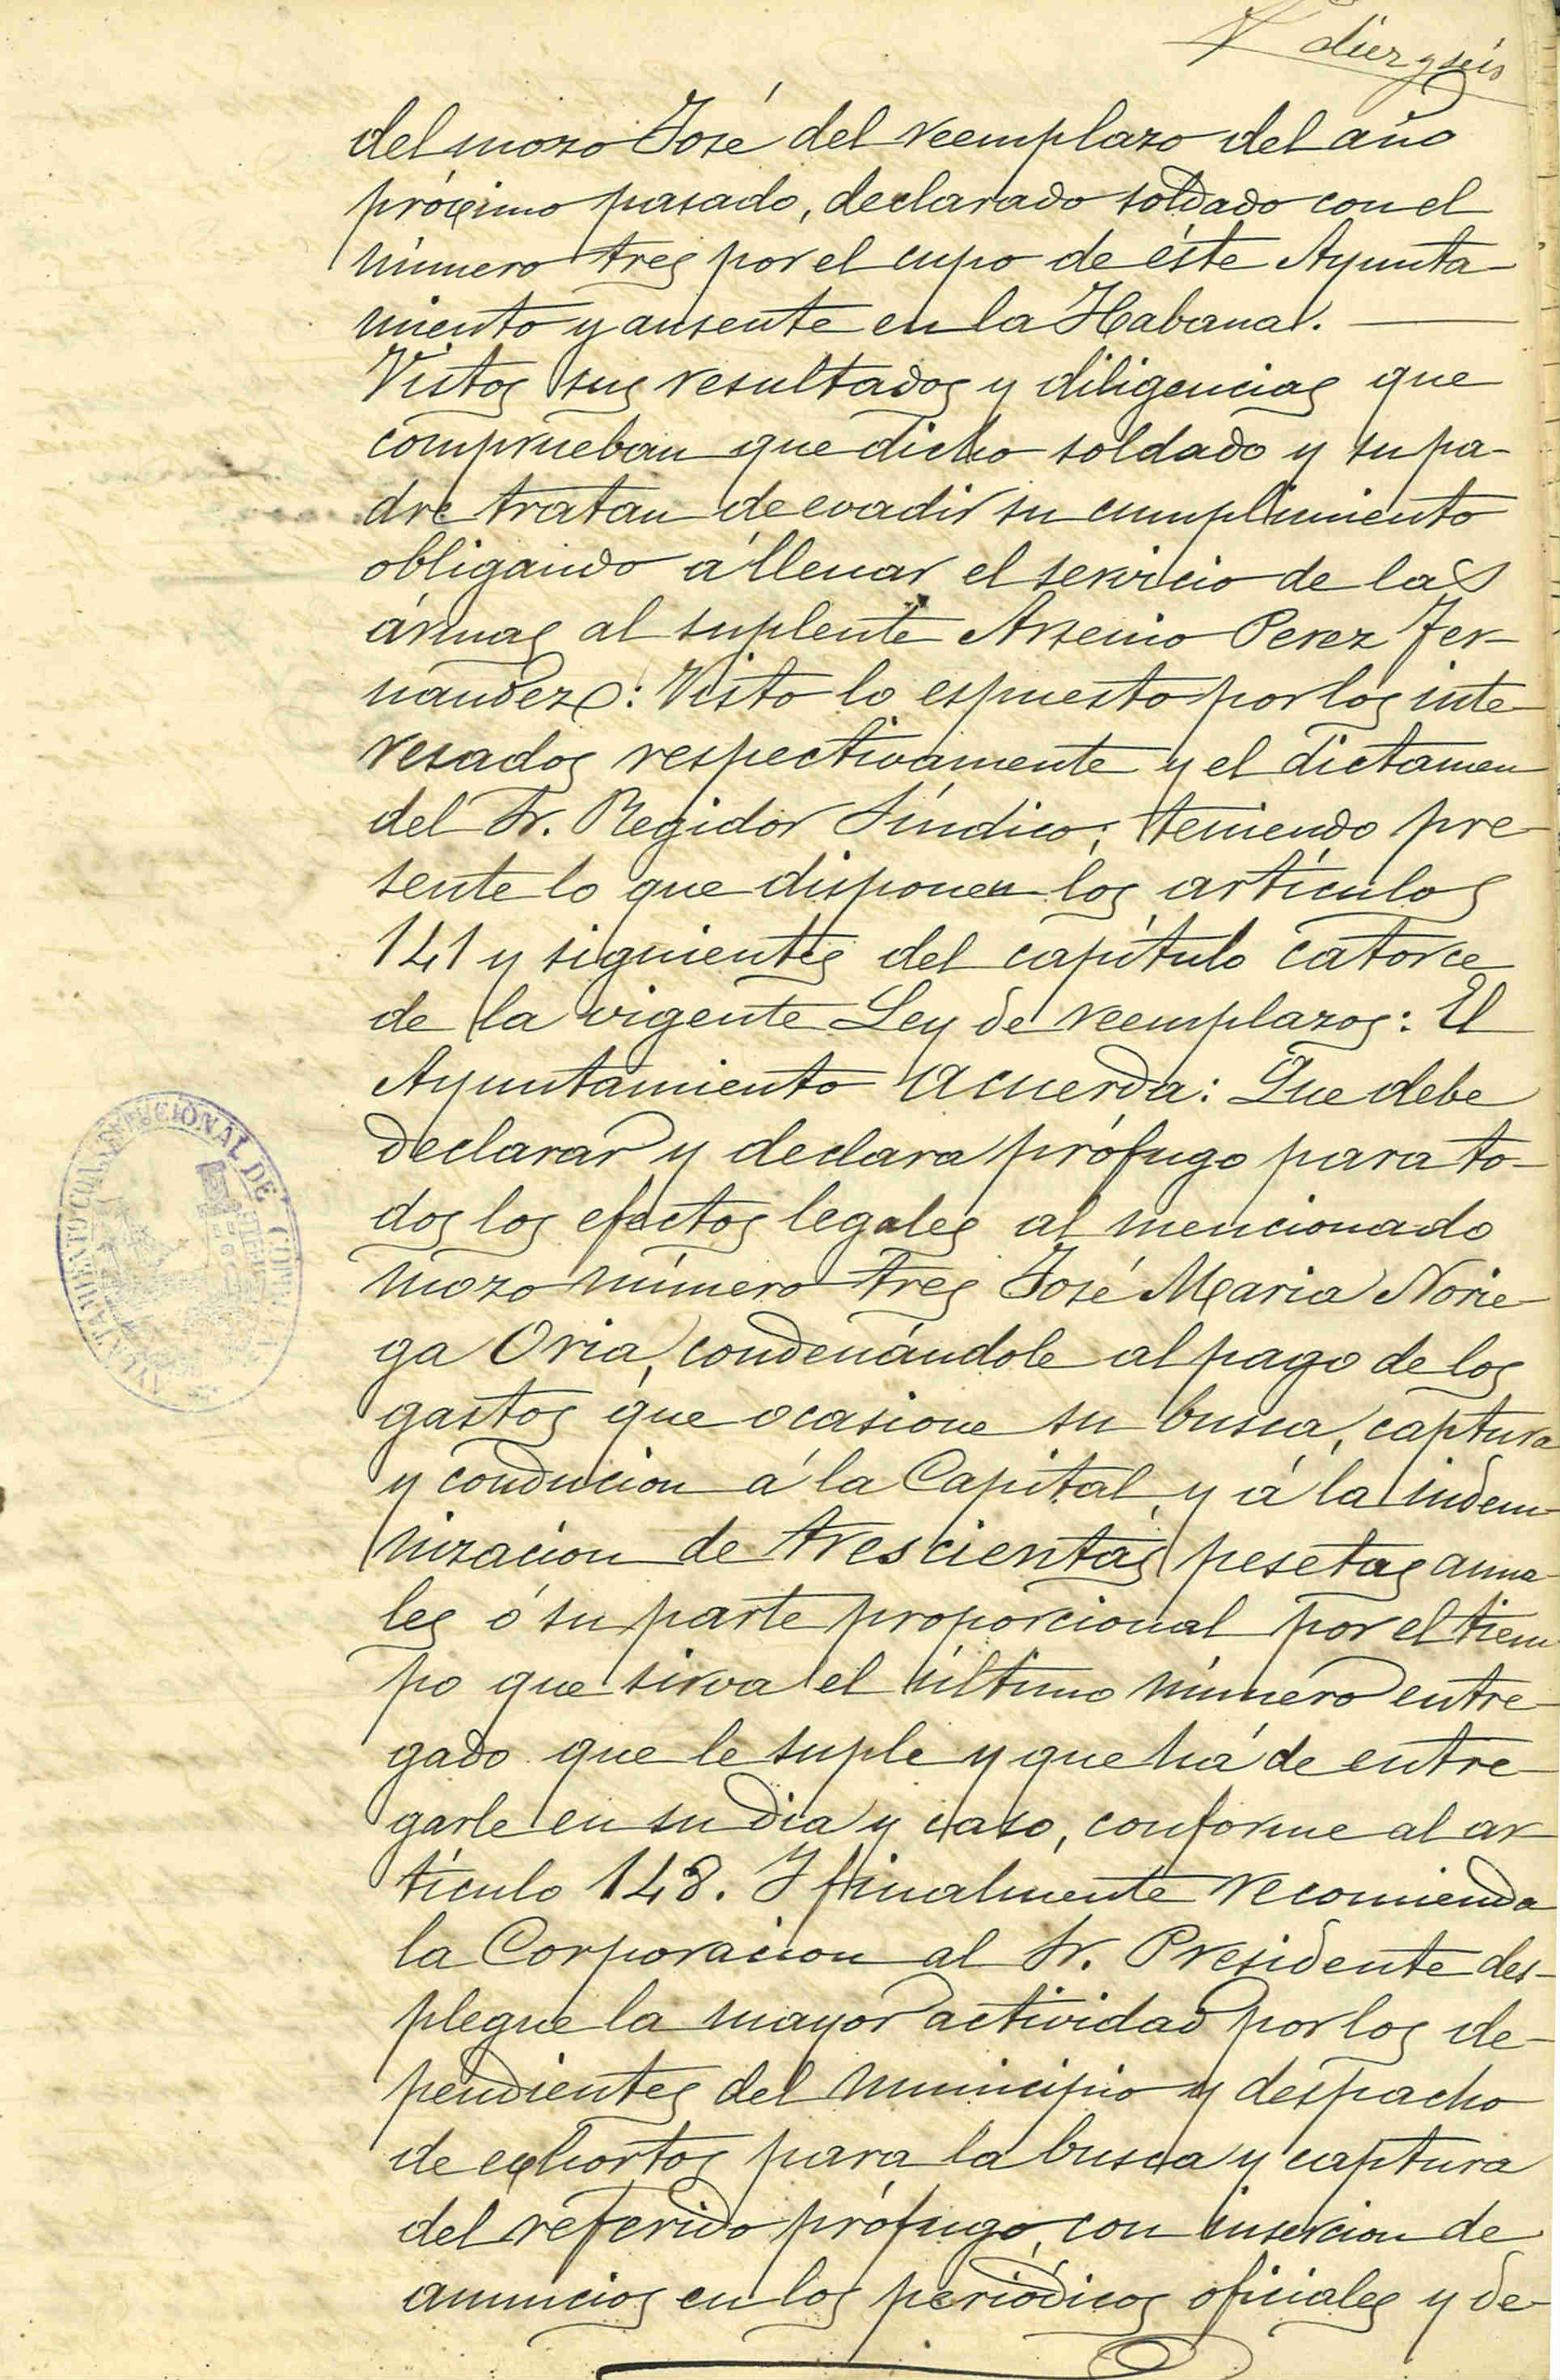 diez y seis
del mozo José del reemplazo del año
próximo pasado, declarado soldado con el
número tres por el cupo de éste Ayunta-
miento y ausente en la Habana.
Vistos sus resultados y diligencias que
comprueban que dicho soldado y su pa-
dre tratan de evadir su cumplimiento
obligando á llenar el servicio de las
ármas al suplente Arsenio Perez Fer-
nandez: Visto lo espuesto por los inte-
resados respectivamente y el dictamen
del Sr. Regidor Síndico; teniendo pre-
sente lo que disponen los artículos
141 y siguientes del capítulo catorce
de la vigente Ley de reemplazos: El
Ayuntamiento Acuerda: Que debe
declarar y declara prófugo para to-
dos los efectos legales al mencionado
mozo número tres José Maria Norie-
ga Oria, condenándole al pago de los
gastos que ocasione su busca, captura
y conducion á la Capital, y á la indem-
nizacion de trescientas pesetas anua-
les ó su parte proporcional por el tiem-
po que sirva el último número entre-
gado que le suple y que há de entre-
garle en su dia y caso, conforme al ar-
tículo 148. Y finalmente recomienda
la Corporacion al Sr. Presidente des-
plegue la mayor actividad por los de-
pendientes del municipio y despacho
de exhortos para la busca y captura
del referido prófugo, con insercion de
anuncios en los periódicos oficiales y de
AYUNTAMIENTO CONSTITUCIONAL DE